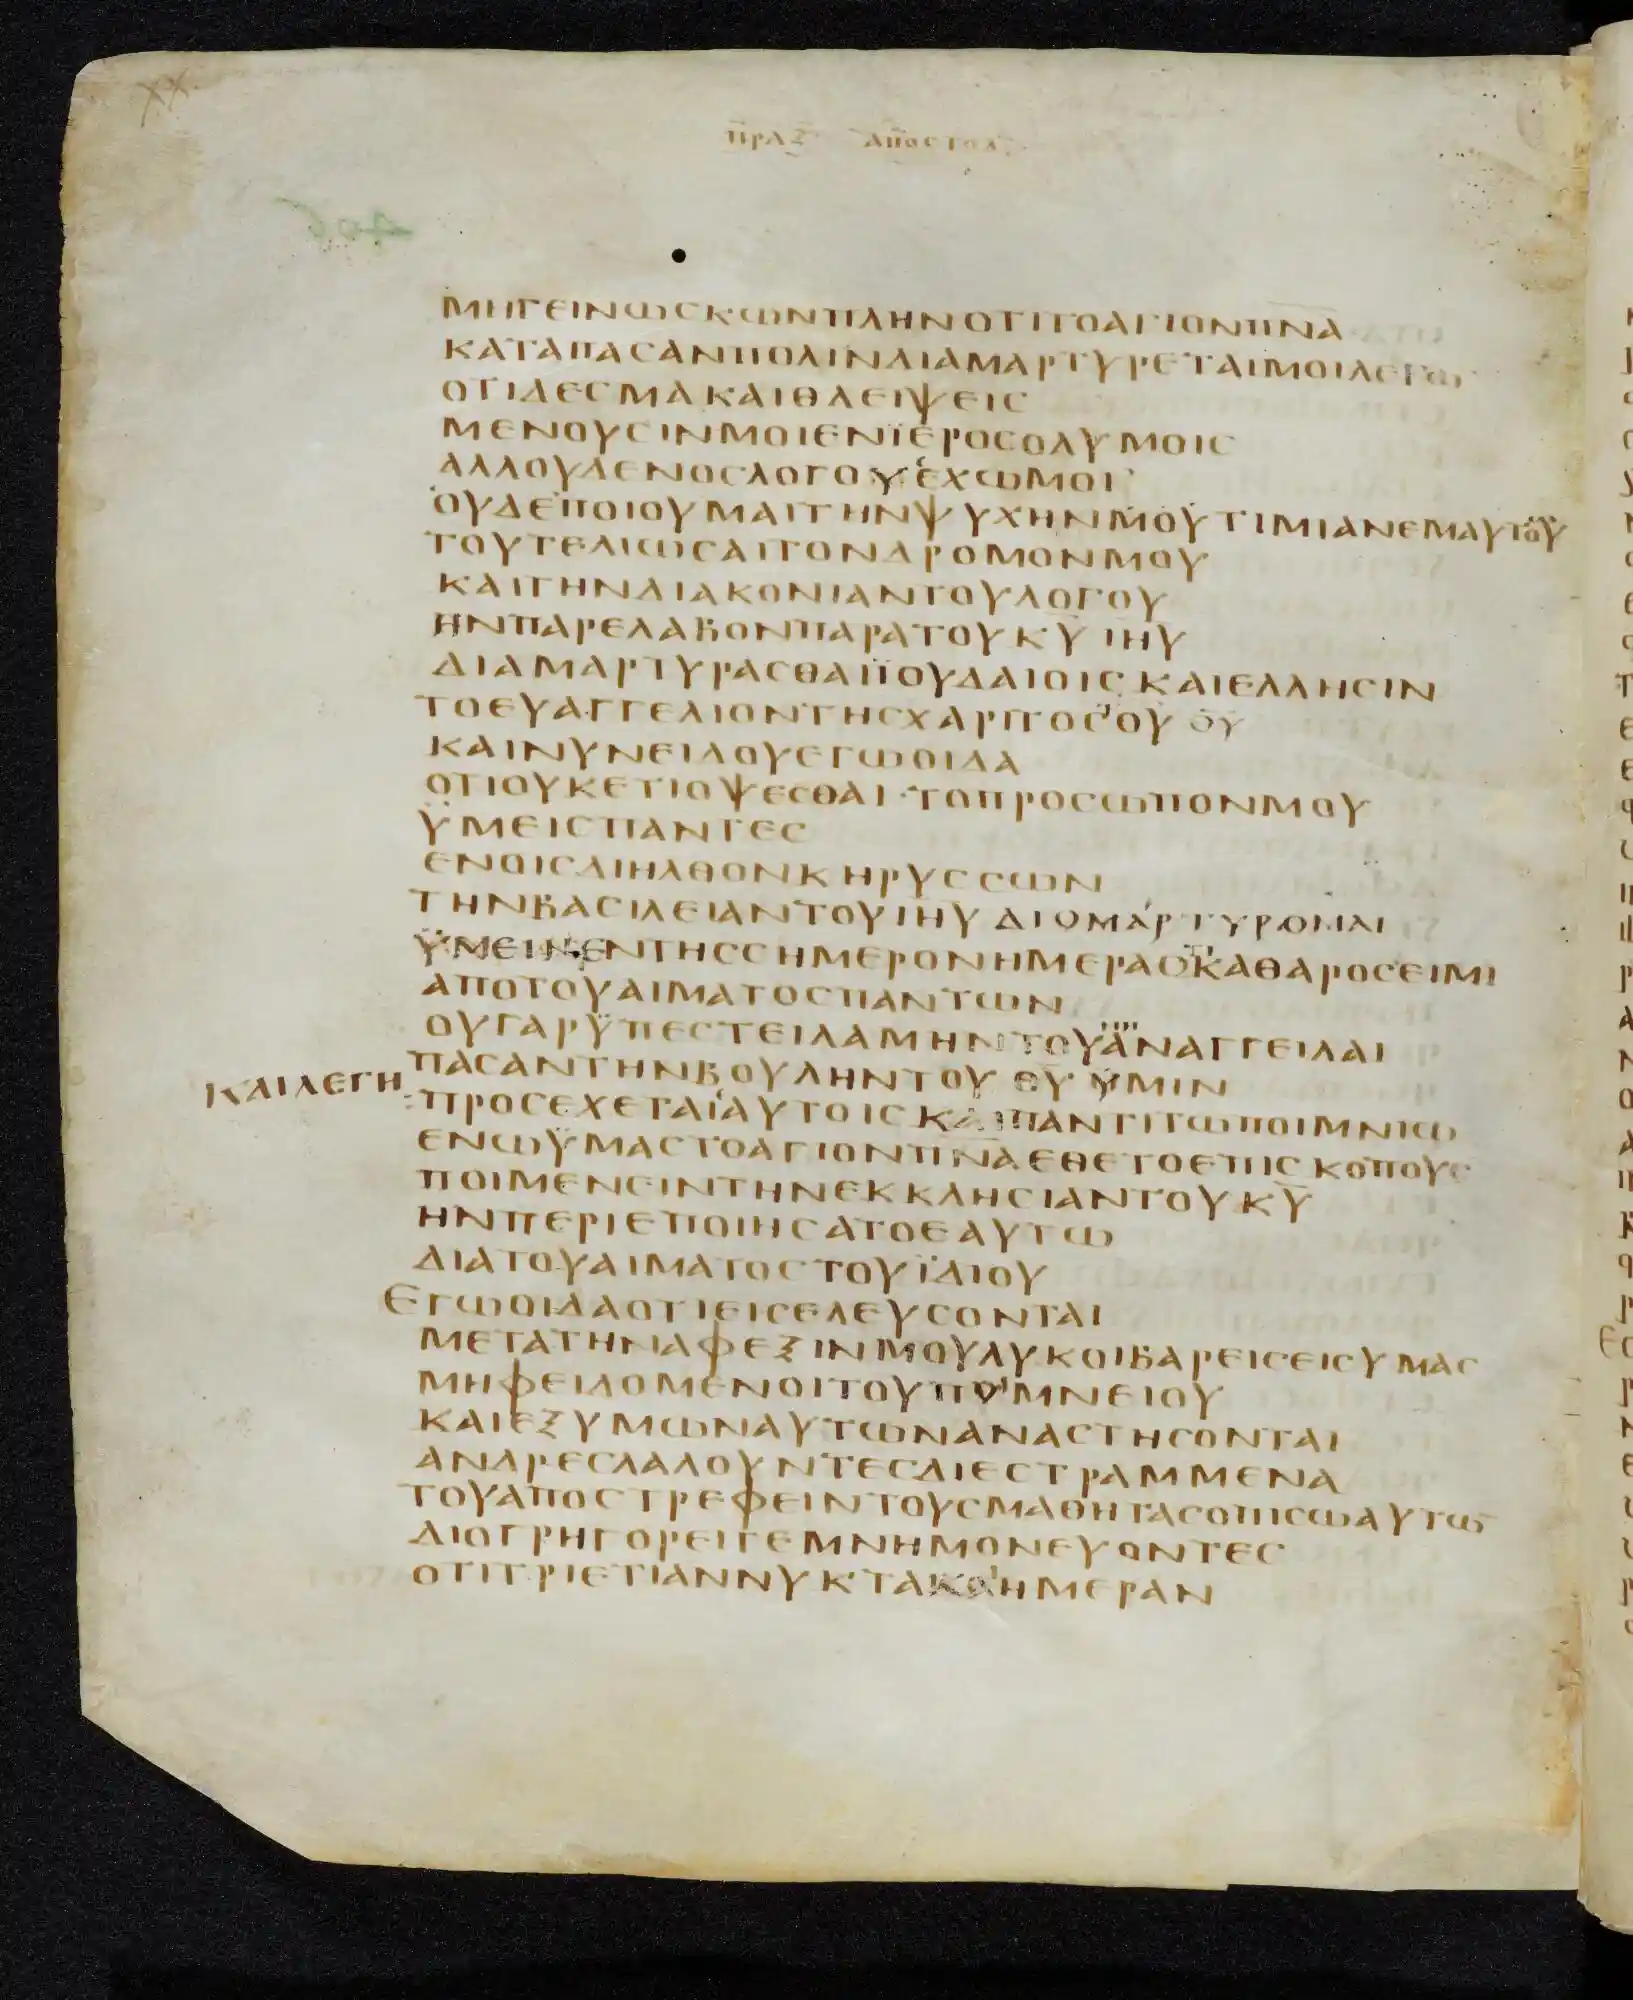 ΠΡΑΞ ΑΠΟΣΤΟΛ
ΜΗΓΕΙΝΩΣΚΩΝΠΛΗΝΟΤΙΤΟΑΓΙΟΝΠΝΑ
ΚΑΤΑΠΑΣΑΝΠΟΛΙΝΔΙΑΜΑΡΤΥΡΕΤΑΙΜΟΙΛΕΓΩ
ΟΤΙΔΕΣΜΑΚΑΙΘΛΕΙΨΕΙΣ
ΜΕΝΟΥΣΙΝΜΟΙΕΝΪΕΡΟΣΟΛΥΜΟΙΣ
ΑΛΛΟΥΔΕΝΟΣΛΟΓΟΥΕΧΩΜΟΙ
ΟΥΔΕΠΟΙΟΥΜΑΙΤΗΝΨΥΧΗΝΜΟΥΤΙΜΙΑΝΕΜΑΥΤΟΥ
ΤΟΥΤΕΛΙΩΣΑΙΤΟΝΔΡΟΜΟΝΜΟΥ
ΚΑΙΤΗΝΔΙΑΚΟΝΙΑΝΤΟΥΛΟΓΟΥ
ΗΝΠΑΡΕΛΑΒΟΝΠΑΡΑΤΟΥΚΥ ΙΗΥ
ΔΙΑΜΑΡΤΥΡΑΣΘΑΙΪΟΥΔΑΙΟΙΣ ΚΑΙΕΛΛΗΣΙΝ
ΤΟΕΥΑΓΓΕΛΙΟΝΤΗΣΧΑΡΙΤΟΣΤΟΥ ΘΥ
ΚΑΙΝΥΝΕΙΔΟΥΕΓΩΟΙΔΑ
ΟΤΙΟΥΚΕΤΙΟΨΕΣΘΑΙ·ΤΟΠΡΟΣΩΠΟΝΜΟΥ
ΫΜΕΙΣΠΑΝΤΕΣ
ΕΝΟΙΣΔΙΗΛΘΟΝΚΗΡΥΣΣΩΝ
ΤΗΝΒΑΣΙΛΕΙΑΝΤΟΥΙΗΥ ΔΙΟΜΑΡΤΥΡΟΜΑΙ
ΫΜΕΙΝΕΝΤΗΣΣΗΜΕΡΟΝΗΜΕΡΑΟΤΙΚΑΘΑΡΟΣΕΙΜΙ
ΑΠΟΤΟΥΑΙΜΑΤΟΣΠΑΝΤΩΝ
ΟΥΓΑΡΫΠΕΣΤΕΙΛΑΜΗΝΤΟΥΑΝΑΓΓΕΙΛΑΙ
ΠΑΣΑΝΤΗΝΒΟΥΛΗΝΤΟΥ ΘΥ ΫΜΙΝ
ΚΑΙΛΕΓΗ
ΠΡΟΣΕΧΕΤΑΙΑΥΤΟΙΣΚΑΙΠΑΝΤΙΤΩΠΟΙΜΝΙΩ
ΕΝΩΫΜΑΣΤΟΑΓΙΟΝΠΝΑΕΘΕΤΟΕΠΙΣΚΟΠΟΥΣ
ΠΟΙΜΕΝΕΙΝΤΗΝΕΚΚΛΗΣΙΑΝΤΟΥΚΥ
ΗΝΠΕΡΙΕΠΟΙΗΣΑΤΟΕΑΥΤΩ
ΔΙΑΤΟΥΑΙΜΑΤΟΣΤΟΥΪΔΙΟΥ
ΕΓΩΟΙΔΑΟΤΙΕΙΣΕΛΕΥΣΟΝΤΑΙ
ΜΕΤΑΤΗΝΑΦΕΞΙΝΜΟΥΛΥΚΟΙΒΑΡΕΙΣΕΙΣΥΜΑΣ
ΜΗΦΕΙΔΟΜΕΝΟΙΤΟΥΠΟΙΜΝΕΙΟΥ
ΚΑΙΕΞΥΜΩΝΑΥΤΩΝΑΝΑΣΤΗΣΟΝΤΑΙ
ΑΝΔΡΕΣΛΑΛΟΥΝΤΕΣΔΙΕΣΤΡΑΜΜΕΝΑ
ΤΟΥΑΠΟΣΤΡΕΦΕΙΝΤΟΥΣΜΑΘΗΤΑΣΟΠΙΣΩΑΥΤΩ
ΔΙΟΓΡΗΓΟΡΕΙΤΕΜΝΗΜΟΝΕΥΟΝΤΕΣ
ΟΤΙΤΡΙΕΤΙΑΝΝΥΚΤΑΚΑΙΗΜΕΡΑΝ